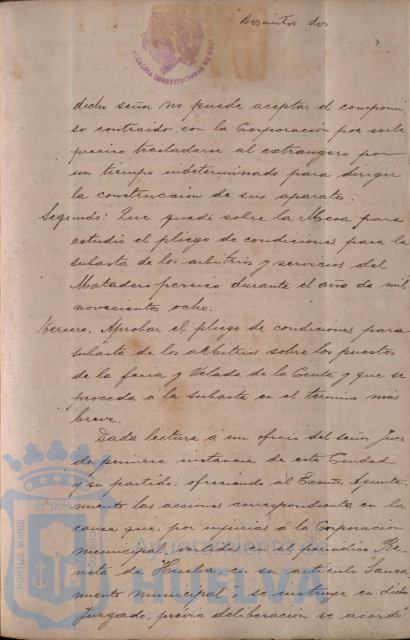 Doscientos dos
ALCALDIA CONSTITUCIONAL DE
dicho señor no puede aceptar el compromi-
so contraido con la Corporación por serle
preciso trasladarse al extrangero por
un tiempo indeterminado para dirigir
la construccion de sus aparatos.
Segundo: Que quede sobre la Mesa para
estudio el pliego de condiciones para la
subasta de los arbitrios y servicios del
Matadero pernico durante el año de mil
novecientos ocho.
Tercero. Aprobar el pliego de condiciones para
subasta de los arbitrios sobre los puestos
de la feria y Velada de la Cinta y que se
proceda a la subasta en el termino mas
breve.
Dada lectura á un oficio del señor Juez
de primera instancia de esta Ciudad
y su partido, ofreciendo al Excmo. Ayunta-
miento las acciones correspondientes en la
causa que, por injurias á la Corporacion
municipal, vertidas en el periodico Re-
vista de Huelva, en su articulo Sanea
miento municipal, se instruye en dicho
Juzgado, prévia deliberación se acordó
PORTUS MARIS ET TERRAE
Ayuntamiento de
HUELVA